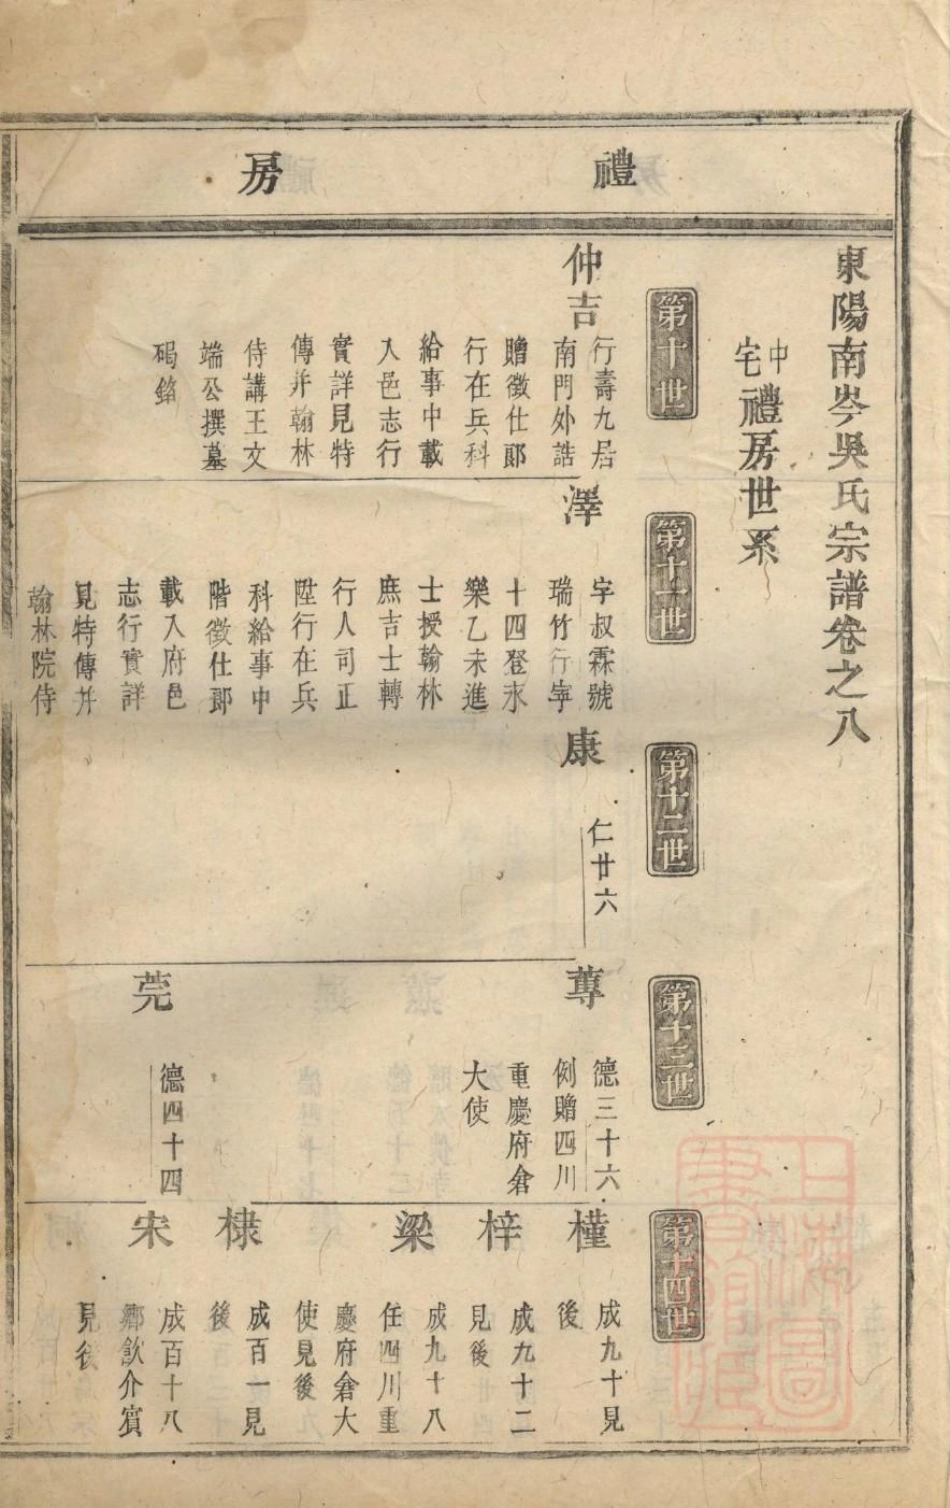 禮房
東陽南岑吳氏宗譜卷之八
中宅禮房世系
第十世
第十一世
第十二世
第十三世
第十四世
仲吉
行壽九居
南門外誥
贈徵仕郎
行在兵科
給事中載
入邑志行
實詳見特
傳并翰林
侍講王文
端公撰墓
碣銘
澤
字叔霖號
瑞竹行寧
十四登永
樂乙未進
士授翰林
庶吉士轉
行人司正
陞行在兵
科給事中
階徵仕郎
載入府邑
志行實詳
見特傳并
翰林院侍
康
仁廿六
蓴
德三十六
例贈四川
重慶府倉
大使
莞
德四十四
槿
成九十見
後
梓
成九十二
見後
梁
成九十八
任四川重
慶府倉大
使見後
棣
成百一見
後
宋
成百十八
鄉飲介賓
見後
上海圖書館藏